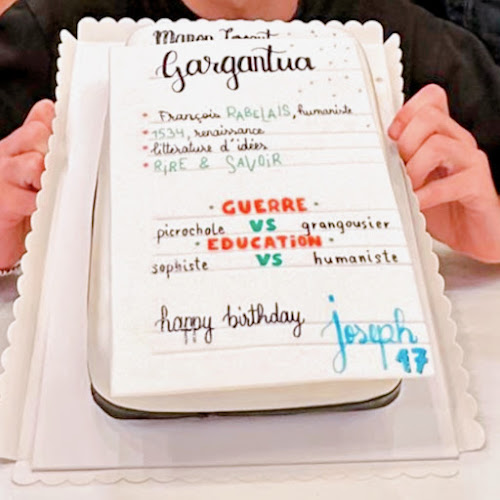 Gargantua
• François RABELAIS, humaniste
• 1534, renaissance
• littérature d'idées
• RIRE & SAVOIR
• GUERRE •
picrochole VS grangousier
• EDUCATION •
sophiste VS humaniste
happy birthday joseph
17